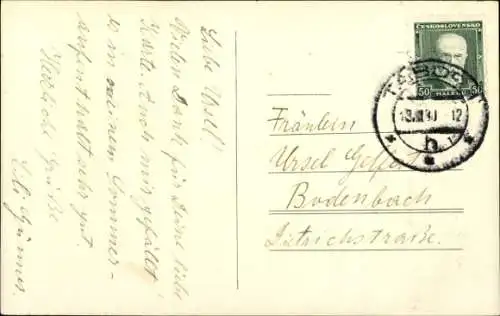 Liebe Ursel!
Vielen Dank für Deine liebe
Karte. Auch mir gefällt
es in meinem Sommer-
aufenthalt sehr gut.
Herzliche Grüße
ČESKOSLOVENSKO
50 HALÉŘŮ 50
TÁBOR
12
b
Fräulein
Ursel
Bodenbach
Dietrichstraße.